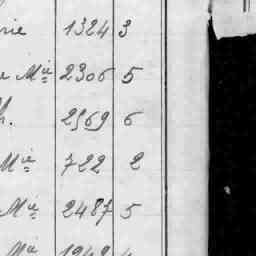 rie 1324 3
e Mie 2306 5
h. 2569 6
Mie 722 2
Mie 2487 5
Mie 1949